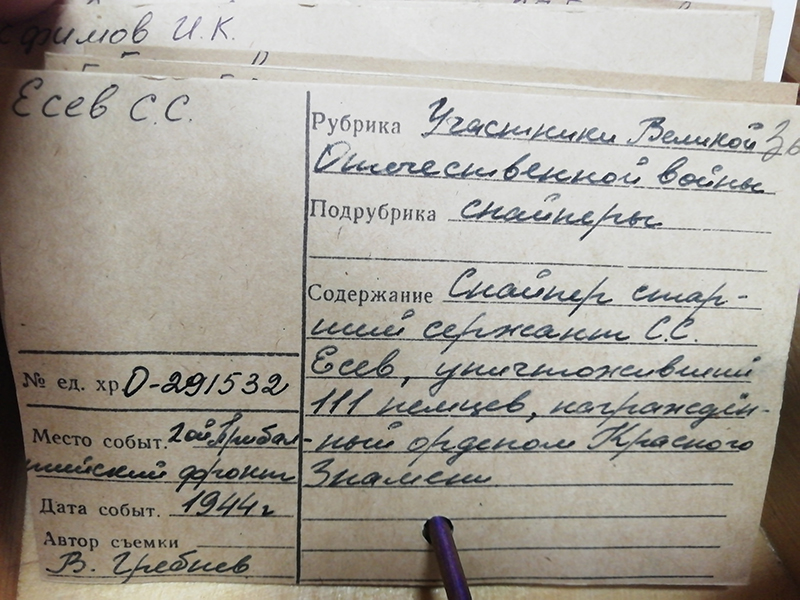 фимов И.К.
Есев С.С.
Рубрика Участники Великой
Отечественной войны
Подрубрика снайперы
Содержание Снайпер стар-
ший сержант С.С.
Есев, уничтоживший
111 немцев, награждён-
ный орденом Красного
Знамени
№ ед. хр. 0-291532
Место событ. 2ой Прибал-
тийский фронт
Дата событ. 1944 г
Автор съемки
В. Гребнев